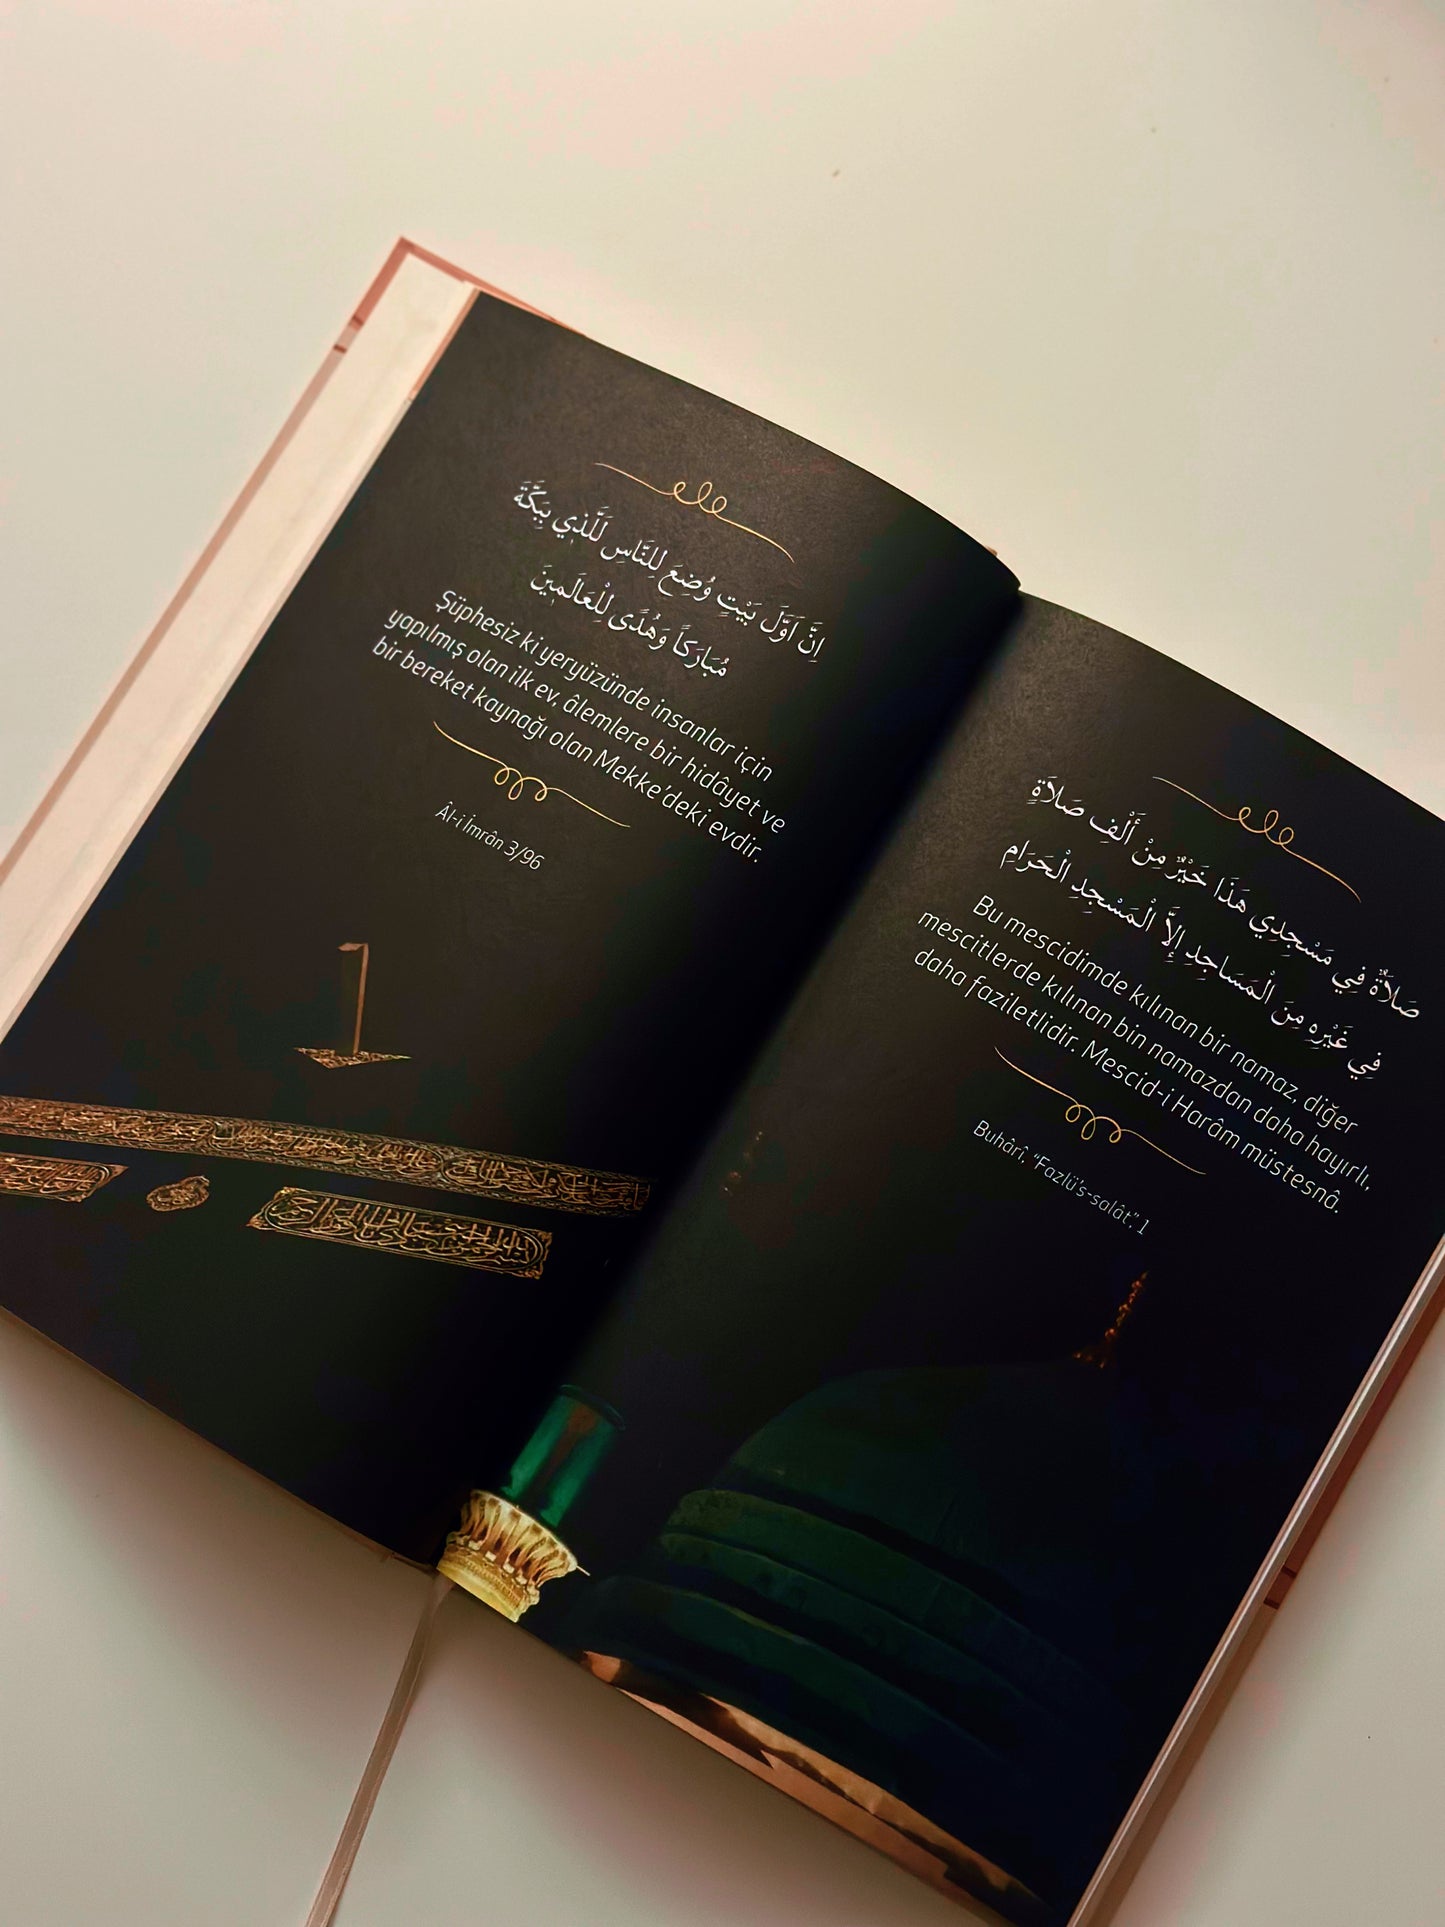 اِنَّ اَوَّلَ بَيْتٍ وُضِعَ لِلنَّاسِ لَلَّذ۪ي بِبَكَّةَ
مُبَارَكاً وَهُدًى لِلْعَالَم۪ينَ
Şüphesiz ki yeryüzünde insanlar için
yapılmış olan ilk ev, âlemlere bir hidâyet ve
bir bereket kaynağı olan Mekke'deki evdir.
Âl-i İmrân 3/96
صَلاَةٌ فِي مَسْجِدِي هَذَا خَيْرٌ مِنْ أَلْفِ صَلاَةٍ
فِي غَيْرِهِ مِنَ الْمَسَاجِدِ إِلاَّ الْمَسْجِدِ الْحَرَامِ
Bu mescidimde kılınan bir namaz, diğer
mescitlerde kılınan bin namazdan daha hayırlı,
daha faziletlidir. Mescid-i Harâm müstesnâ.
Buhârî, "Fazlü's-salât", 1